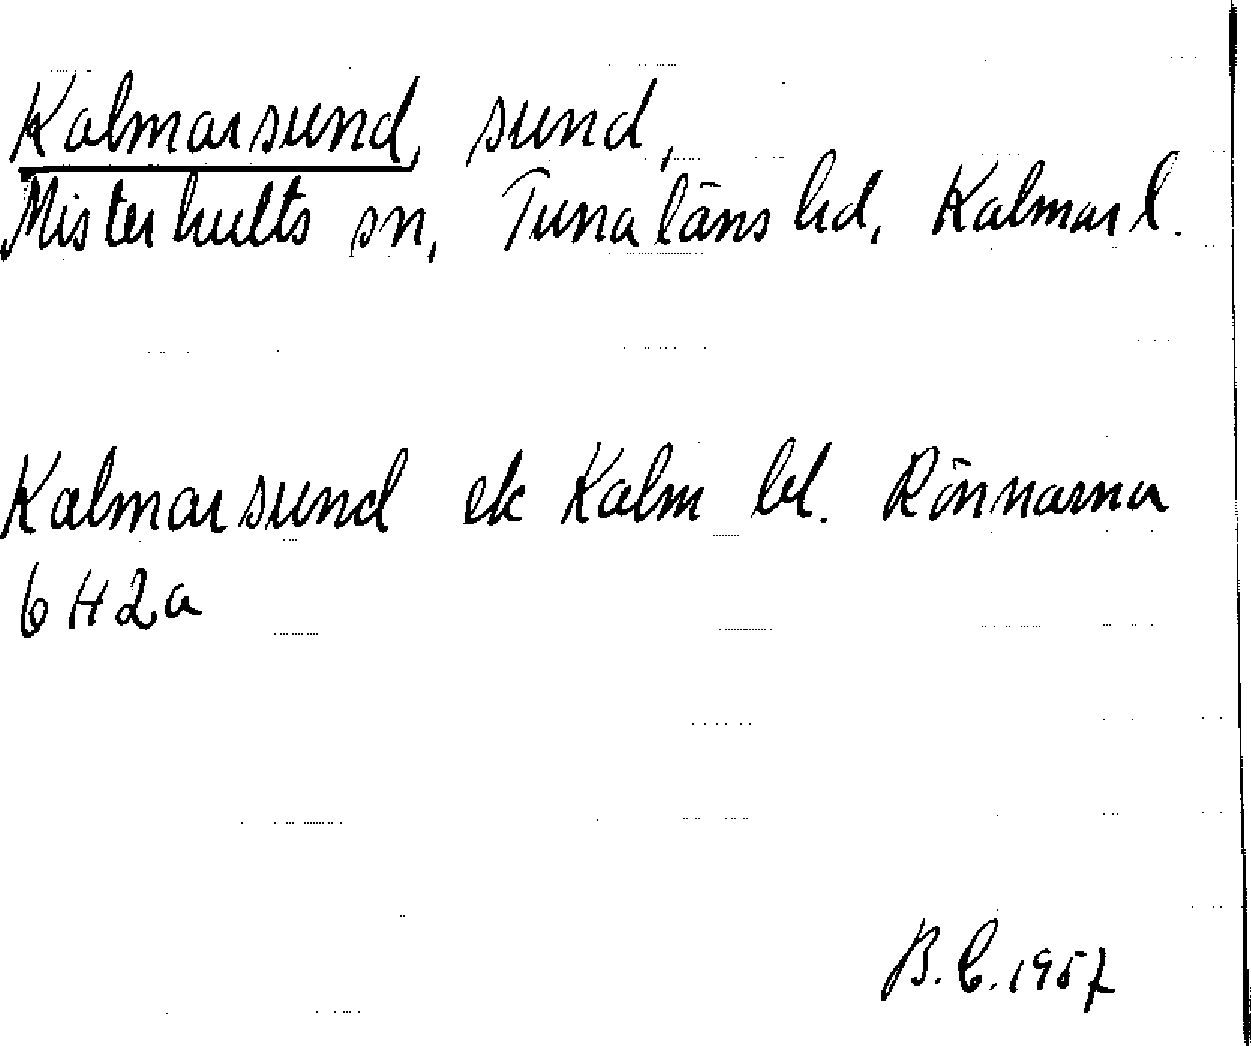 Kalmarsund, sund,
Misterhults sn, Tunaläns hd, Kalmar l.
Kalmarsund ek Kalm bl. Rönnarna
6H2a
B.C. 1957